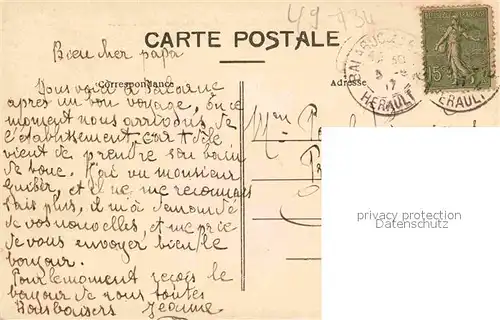 49 134
CARTE POSTALE
Bien cher papa
Correspondance
Adresse
RÉPUBLIQUE FRANÇAISE
15
HERAULT
HERAULT
Nous voici à Balaruc
après un bon voyage, en ce
moment nous arrivons de
l'établissement, car Adèle
vient de prendre son bain
de boue. J'ai vu monsieur
et il ne me reconnais
sais plus, il m'a demandé
de vos nouvelles, et me prie
de vous envoyer bien le
bonjour.
Pour le moment reçois le
bonjour de nous toutes
Bons baisers Jeanne
privacy protection
Datenschutz